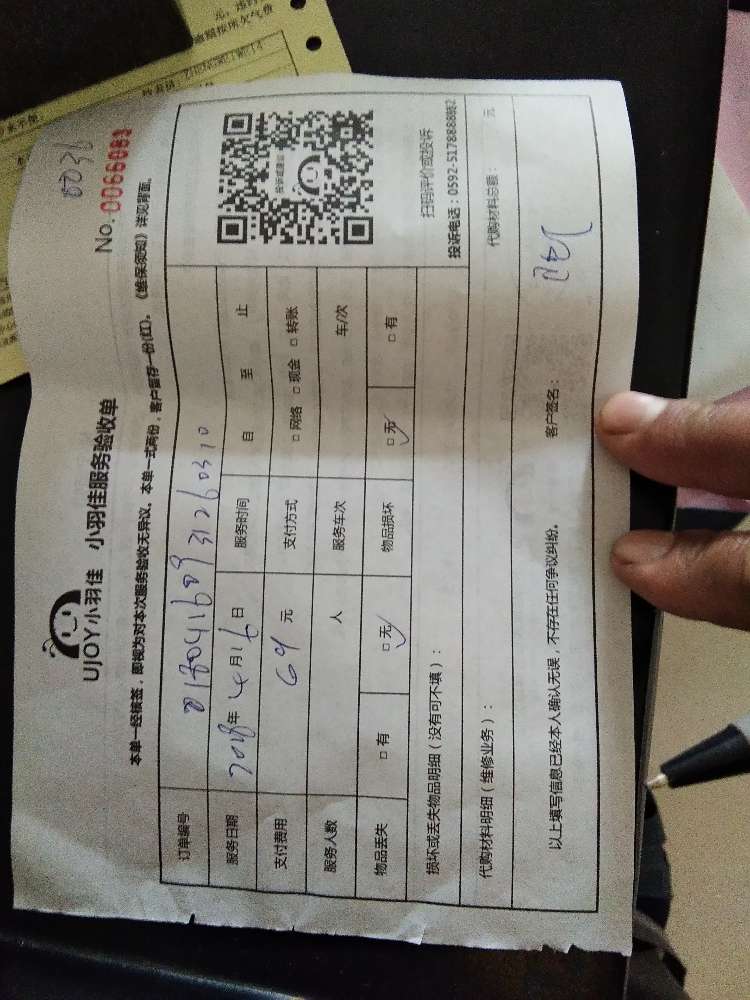 UJOY小羽佳 小羽佳服务验收单
No. 0066083
本单一经核签，即视为对本次服务验收无异议。本单一式两份，客户留存一份(红)。《维保须知》详见背面。
订单编号
服务日期 2018年 4月16日 服务时间 自 至 止
支付费用 69 元 支付方式 □网络 □现金 □转账
服务人数 人 服务车次 车/次
物品丢失 □有 □无 物品损坏 □无 □有
扫码评价或投诉
投诉电话：0592-5178888转2
损坏或丢失物品明细（没有可不填）：
代购材料明细（维修业务）： 代购材料总额： 元
以上填写信息已经本人确认无误，不存在任何争议纠纷。 客户签名：